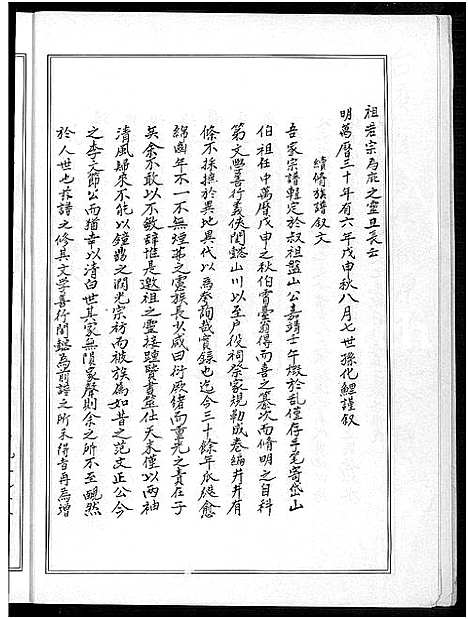 祖若宗為応之靈且長云
明萬曆三十年有六年戊申秋八月七世孫化鯉謹叙
續脩族譜叙文
吾家宗譜輯定於叔祖盤山公嘉靖壬午燬於乱僅存手毫寄岱山
伯祖任中萬曆戊申之秋伯霄臺翁得而喜之纂次而脩明之自科
第文學善行義俠閫懿山川以至戶役祠祭家規勒成卷編井井有
條不採摭於異地異代以為夸詢哉實錄也迄今三十餘年瓜瓞愈
綿齒年不一不無湮弟之憲族長少咸曰衍厥緒而重光之責在子
矣余不敢以不敏辭惟是邀祖之靈接踵賢書筮仕天末僅以兩袖
清風歸來不能以鐘鼎之潤光宗祊而被族為如昔之范文正公今
之李文節公而猶幸以清白世其家無隕家聲則余之所不至靦然
於人世也茲譜之修其文學善行閫懿為前譜之所未得者再為增